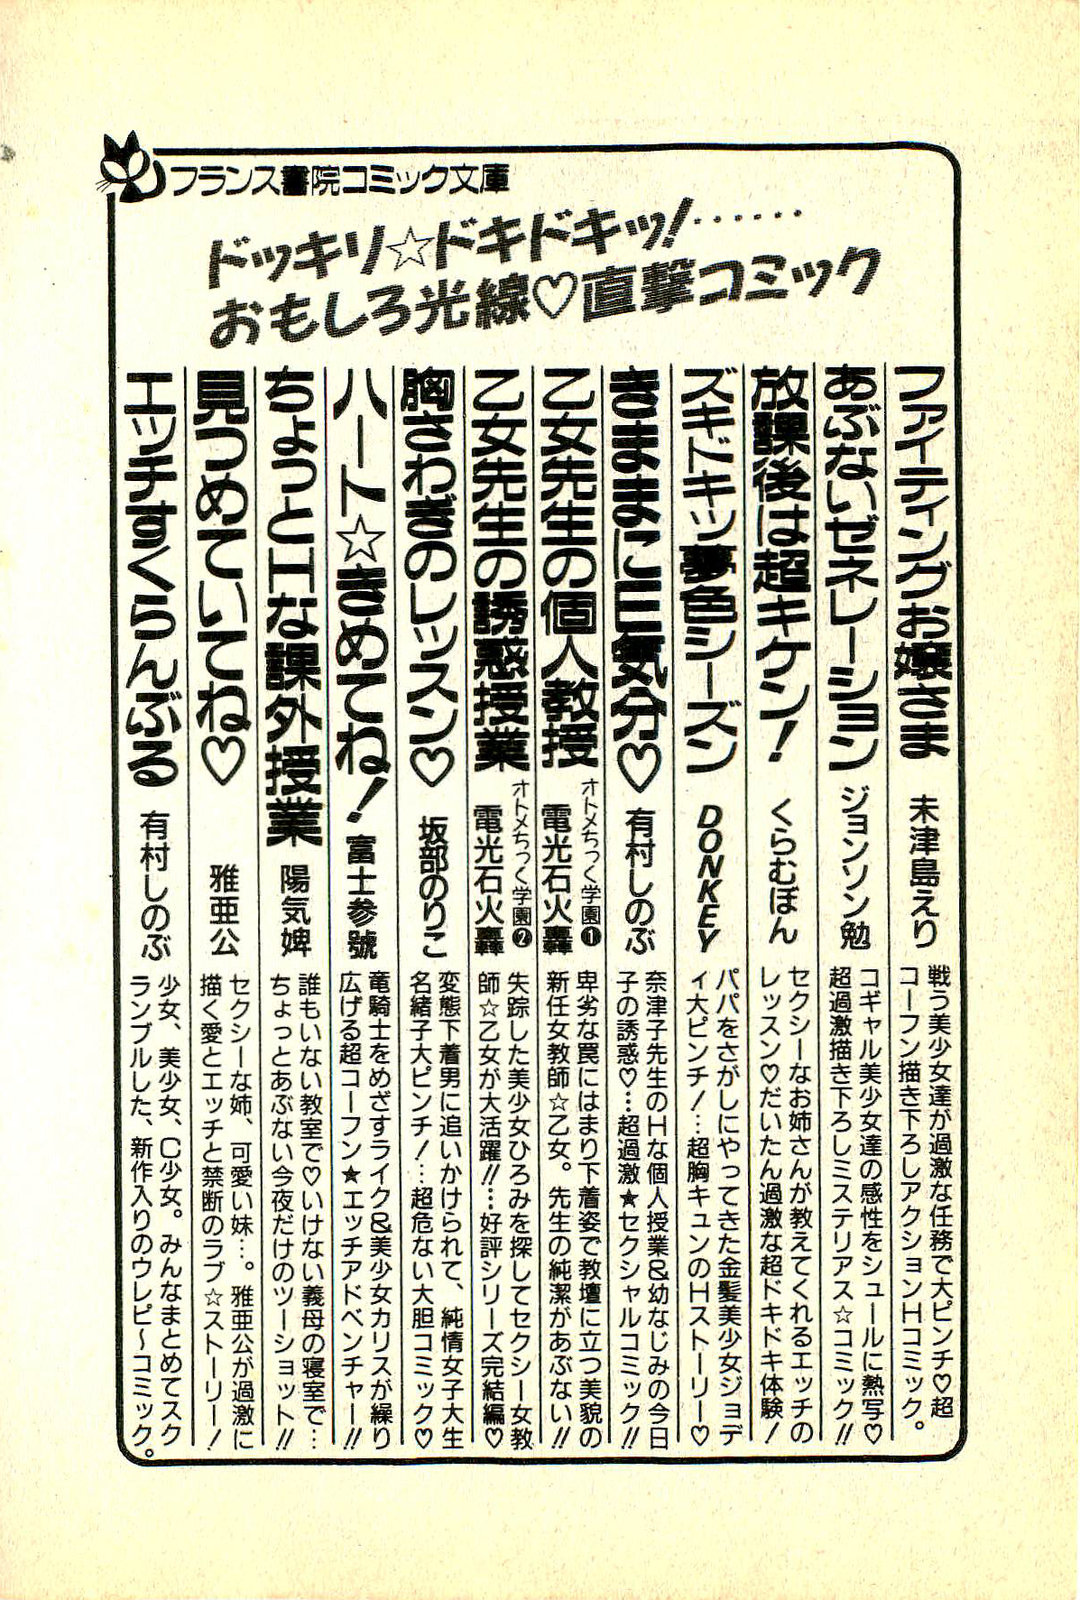 フランス書院コミック文庫
ドッキリ☆ドキドキッ!……
おもしろ光線♡直撃コミック
ファイティングお嬢さま
未津島えり
戦う美少女達が過激な任務で大ピンチ♡超
コーフン描き下ろしアクションHコミック。
あぶないゼネレーション
ジョンソン勉
コギャル美少女達の感性をシュールに熱写♡
超過激描き下ろしミステリアス☆コミック!!
放課後は超キケン!
くらむぼん
セクシーなお姉さんが教えてくれるエッチの
レッスン♡だいたん過激な超ドキドキ体験!
ズキドキッ夢色シーズン
DONKEY
パパをさがしにやってきた金髪美少女ジョデ
ィ大ピンチ!…超胸キュンのHストーリー♡
きままにE気分♡
有村しのぶ
奈津子先生のHな個人授業&幼なじみの今日
子の誘惑♡…超過激★セクシャルコミック!!
乙女先生の個人教授
オトメちっく学園❶
電光石火轟
卑劣な罠にはまり下着姿で教壇に立つ美貌の
新任女教師☆乙女。先生の純潔があぶない!!
乙女先生の誘惑授業
オトメちっく学園❷
電光石火轟
失踪した美少女ひろみを探してセクシー女教
師☆乙女が大活躍!!…好評シリーズ完結編♡
胸さわぎのレッスン♡
坂部のりこ
変態下着男に追いかけられて、純情女子大生
名緒子大ピンチ!…超危ない大胆コミック♡
ハート☆きめてね!
富士参號
竜騎士をめざすライク&美少女カリスが繰り
広げる超コーフン★エッチアドベンチャー!!
ちょっとHな課外授業
陽気婢
誰もいない教室で♡いけない義母の寝室で…
ちょっとあぶない今夜だけのツーショット!!
見つめていてね♡
雅亜公
セクシーな姉、可愛い妹…。雅亜公が過激に
描く愛とエッチと禁断のラブ☆ストーリー!
エッチすくらんぶる
有村しのぶ
少女、美少女、C少女。みんなまとめてスク
ランブルした、新作入りのウレピ～コミック。